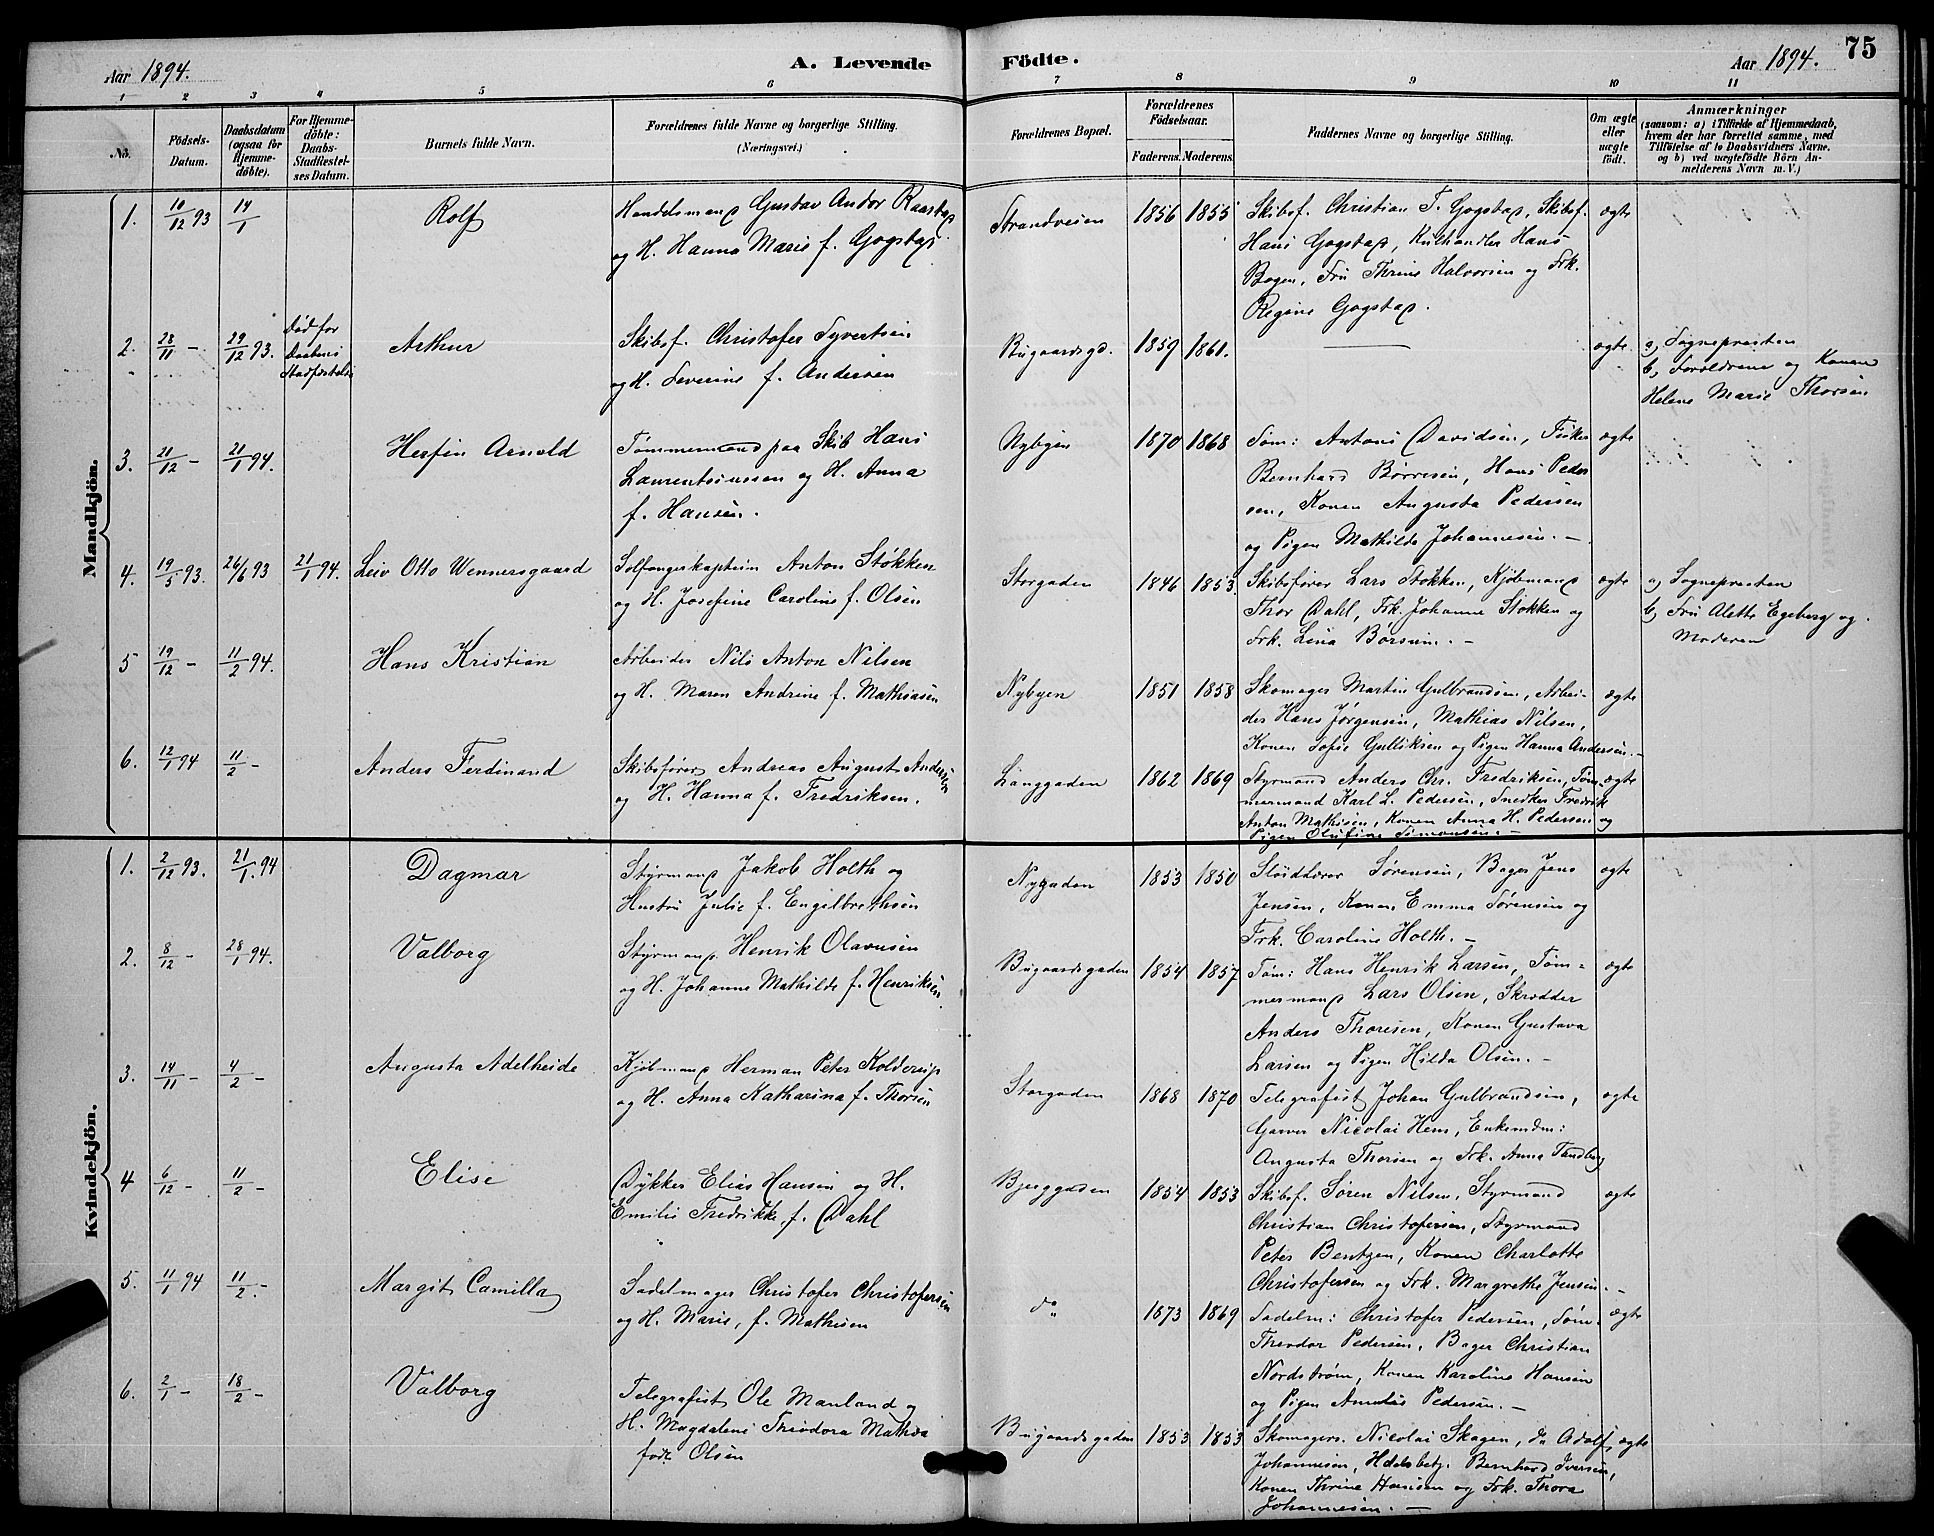 Aar 1894.
A. Levende
Födte.
Aar 1894.
75
1 2 3 4 5 6 7 8 9 10 11
No.
Födsels-
Datum.
Daabsdatum
(ogsaa for
Hjemme-
døbte).
For Hjemme-
døbte:
Daabs-
Stadfæstel-
ses Datum.
Barnets fulde Navn.
Forældrenes fulde Navne og borgerlige Stilling.
(Næringsvei.)
Forældrenes Bopæl.
Forældrenes
Födselsaar.
Faderens. Moderens.
Faddernes Navne og borgerlige Stilling.
Om ægte
eller
uægte
født.
Anmærkninger
(saasom: a) i Tilfælde af Hjemmedaab,
hvem der har forrettet samme, med
Tilføielse af to Daabsvidners Navne,
og b) ved uægtefødte Börn An-
melderens Navn m. V.)
Mandkjön.
1. 10/12 93 14/1 Rolf
Handelsmand Gustav Andor Raastad
og H. Hanna Marie f. Gogstad.
Strandveien 1856 1855
Skibsf. Christian F. Gogstad, Skibsf.
Hans Gogstad, Kulhandler Hans
Bogen, Fru Thrine Halvorsen og Frk.
Regine Gogstad.
ægte
2. 28/11 - 29/12 93.
Død før
Daabens
Stadfæstelse
Arthur
Skibsf. Christofer Syvertsen
og H. Severine f. Andersen
Bugaardsgd. 1859 1861.
ægte.
a, Sognepresten
b, Forældrene og Konen
Helene Marie Thorsen
3. 21/12 - 21/1 94. Herfin Arnold
Tømmermand paa Skib Hans
Laurentsiussen og H. Anna
f. Hansen.
Nybyen 1870 1868
Tøm: Antoni Davidsen, Fisker
Bernhard Børresen, Hans Peder
sen, Konen Augusta Pedersen
og Pigen Mathilde Johannesen. -
ægte
4. 19/5 93. 26/6 93 21/1 94. Leiv Otto Wennersgaard
Selfangerkaptein Anton Støkken
og H. Josefine Caroline f. Olsen
Storgaden 1846 1853.
Skibsfører Lars Støkken, Kjøbmand
Thor Dahl, Frk. Johanne Støkken og
Frk. Lina Børsum. -
ægte
a, Sognepresten
b, Fru Alette Egeberg og
Moderen
5 19/12 - 11/2 94. Hans Kristian
Arbeider Nils Anton Nilsen
og H. Maren Andrine f. Mathiasen
Nybyen 1851 1858
Skomager Martin Gulbrandsen, Arbei-
der Hans Jørgensen, Mathias Nilsen,
Konen Sofie Gulliksen og Pigen Hanna Andersen. -
ægte
6. 12/1 94 11/2 - Anders Ferdinand
Skibsfører Andreas August Andersen
og H. Hanna f. Fredriksen.
Langgaden 1862 1869
Styrmand Anders Chr. Fredriksen, Tøm-
mermand Karl L. Pedersen, Snedker Fredrik
Anton Mathisen, Konen Anna H. Pedersen og
Pigen Olufine Simonsen. -
ægte
Kvindekjön.
1. 2/12 93. 21/1. 94 Dagmar
Styrmand Jakob Holth og
Hustru Julie f. Engelbrethsen
Nygaden 1853 1850
Sløidlærer Sørensen, Bager Jens
Jensen, Konen Emma Sørensen og
Frk. Caroline Holth. -
ægte
2. 8/12 - 28/1 94. Valborg
Styrmand Henrik Olavesen
og H. Johanne Mathilde f. Henriksen
Bugaardsgaden 1854 1857
Tøm: Hans Henrik Larsen, Tøm=
mermand Lars Olsen, Skrædder
Anders Thoresen, Konen Gustava
Larsen og Pigen Hilda Olsen. -
ægte
3. 14/11 - 4/2 - Augusta Adelheide
Kjøbmand Herman Peter Kolderup
og H. Anna Katharina f. Thorsen
Storgaden 1868 1870
Telegrafist Johan Gulbrandsen,
Garver Nicolai Hem, Enkemdm:
Augusta Thorsen og Frk. Anna Tandberg
ægte
4 6/12 - 11/2 - Elise
Dykker Elias Hansen og H.
Emilie Fredrikke f. Dahl
Bjerggaden 1854 1853
Skibsf. Søren Nilsen, Styrmand
Christian Christofersen, Styrmand
Peter Bentzen, Konen Charlotte
Christofersen og Frk. Margrethe Jensen. -
ægte
5. 11/1 94 11/2. - Margit Camilla
Sadelmager Christofer Christofersen
og H. Marie, f. Mathisen
do 1873 1869
Sadelm: Christofer Pedersen, Tøm.
Theodor Pedersen, Bager Christian
Nordstrøm, Konen Karoline Hansen
og Pigen Amalie Pedersen. -
ægte
6. 2/1 - 18/2 - Valborg
Telegrafist Ole Manland og
H. Magdalene Theodora Mathea
født Olsen
Bugaardsgaden 1853 1853
Skomagers. Nicolai Skagen, do Adolf
Johannesen, Hdelsbetj. Bernhard Iversen,
Konen Thrine Hansen og Frk. Thora
Johannesen. -
ægte